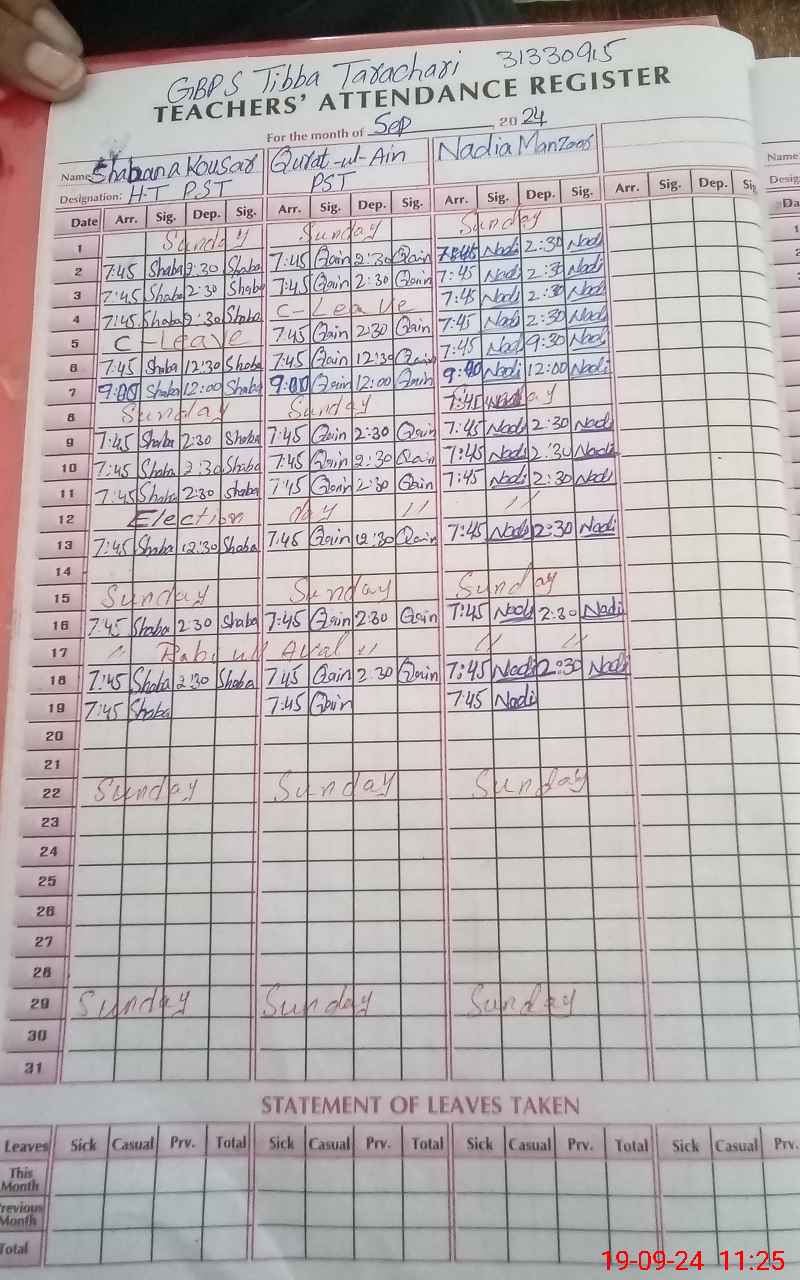 GBPS Tibba Tarachari 31330915
TEACHERS' ATTENDANCE REGISTER
For the month of Sep 2024
Name Shabana Kousar Qurat-ul-Ain Nadia Manzoor Name:
Designation: H-T PST PST
Date Arr. Sig. Dep. Sig. Arr. Sig. Dep. Sig. Arr. Sig. Dep. Sig. Arr. Sig. Dep. Sig
1 Sunday Sunday Sunday
2 7:45 Shaba 2:30 Shaba 7:45 Qain 2:30 Qain 7:45 Nadi 2:30 Nadi
3 7:45 Shaba 2:30 Shaba 7:45 Qain 2:30 Qain 7:45 Nadi 2:30 Nadi
4 7:45 Shaba 2:30 Shaba C-Leave 7:45 Nadi 2:30 Nadi
5 C-Leave 7:45 Qain 2:30 Qain 7:45 Nadi 2:30 Nadi
6 7:45 Shaba 12:30 Shaba 7:45 Qain 12:30 Qain 7:45 Nadi 9:30 Nadi
7 9:00 Shaba 12:00 Shaba 9:00 Qain 12:00 Qain 9:00 Nadi 12:00 Nadi
8 Sunday Sunday
9 7:45 Shaba 2:30 Shaba 7:45 Qain 2:30 Qain 7:45 Nadi 2:30 Nadi
10 7:45 Shaba 2:30 Shaba 7:45 Qain 2:30 Qain 7:45 Nadi 2:30 Nadi
11 7:45 Shaba 2:30 Shaba 7:45 Qain 2:30 Qain 7:45 Nadi 2:30 Nadi
12 Election day " "
13 7:45 Shaba 12:30 Shaba 7:45 Qain 12:30 Qain 7:45 Nadi 2:30 Nadi
14
15 Sunday Sunday Sunday
16 7:45 Shaba 2:30 Shaba 7:45 Qain 2:30 Qain 7:45 Nadi 2:30 Nadi
17 " Rabi ul Aval " " "
18 7:45 Shaba 2:30 Shaba 7:45 Qain 2:30 Qain 7:45 Nadi 2:30 Nadi
19 7:45 Shaba 7:45 Qain 7:45 Nadi
20
21
22 Sunday Sunday Sunday
23
24
25
26
27
28
29 Sunday Sunday Sunday
30
31
STATEMENT OF LEAVES TAKEN
Leaves Sick Casual Prv. Total Sick Casual Prv. Total Sick Casual Prv. Total Sick Casual Prv.
This
Month
Previous
Month
Total
19-09-24 11:25